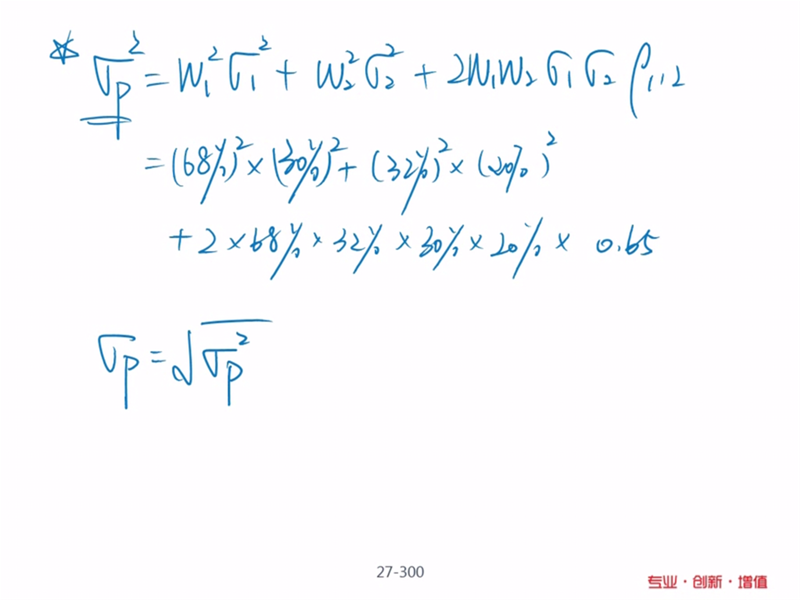 ☆ σp² = W₁²σ₁² + W₂²σ₂² + 2W₁W₂σ₁σ₂ρ₁,₂
= (68%)² × (30%)² + (32%)² × (20%)²
+ 2 × 68% × 32% × 30% × 20% × 0.65
σp = √σp²
27-300
专业・创新・增值